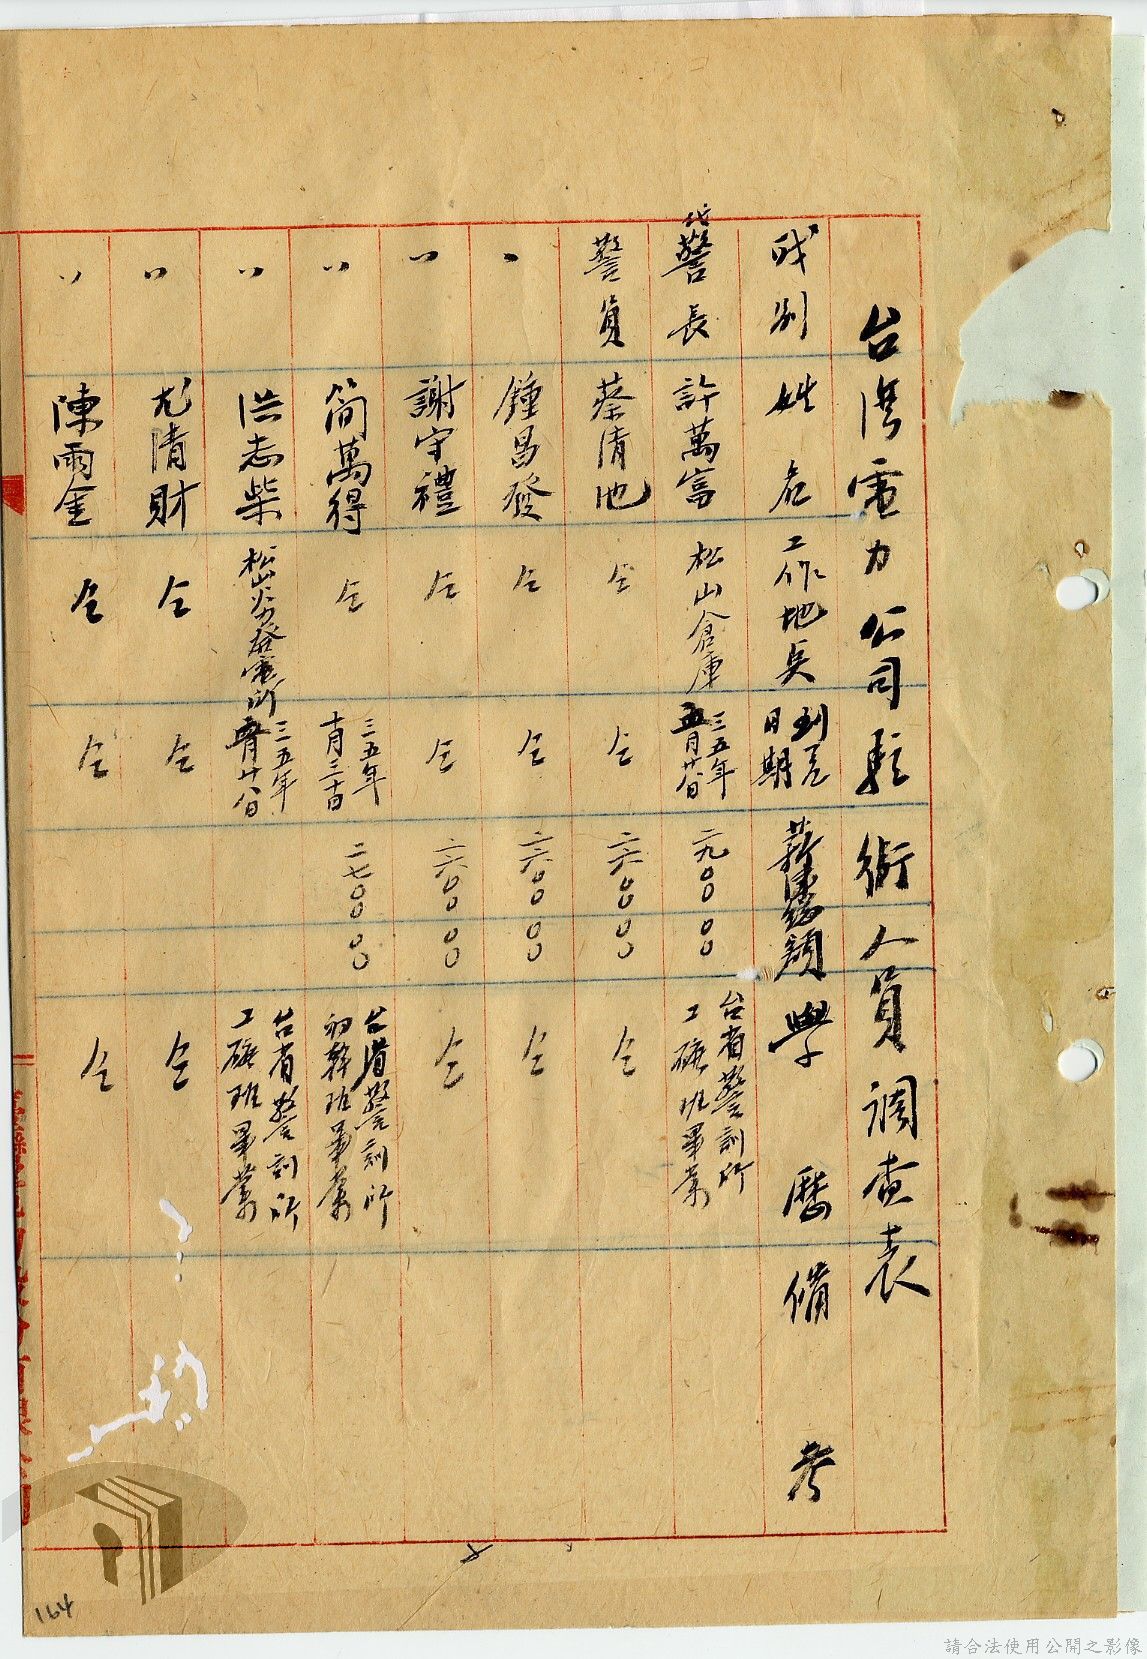 台湾電力公司駐衛人員調查表
职别 姓名 工作地点 到差日期 薪額 學歷 備考
代警長 許萬富 松山倉庫 三五年五月廿八日 二九〇〇〇 台省警訓所工礦班畢業
警員 蔡清池 仝 仝 二六〇〇〇 仝
〃 鍾昌發 仝 仝 二六〇〇〇 仝
〃 謝守禮 仝 仝 二六〇〇〇 仝
〃 簡萬得 仝 三五年十月三十日 二七〇〇〇 台灣省警訓所初幹班畢業
〃 洪志柴 松山火力發電所 三五年五月廿八日 台省警訓所工礦班畢業
〃 尤清財 仝 仝 仝
〃 陳雨金 仝 仝 仝
164
請合法使用公開之影像